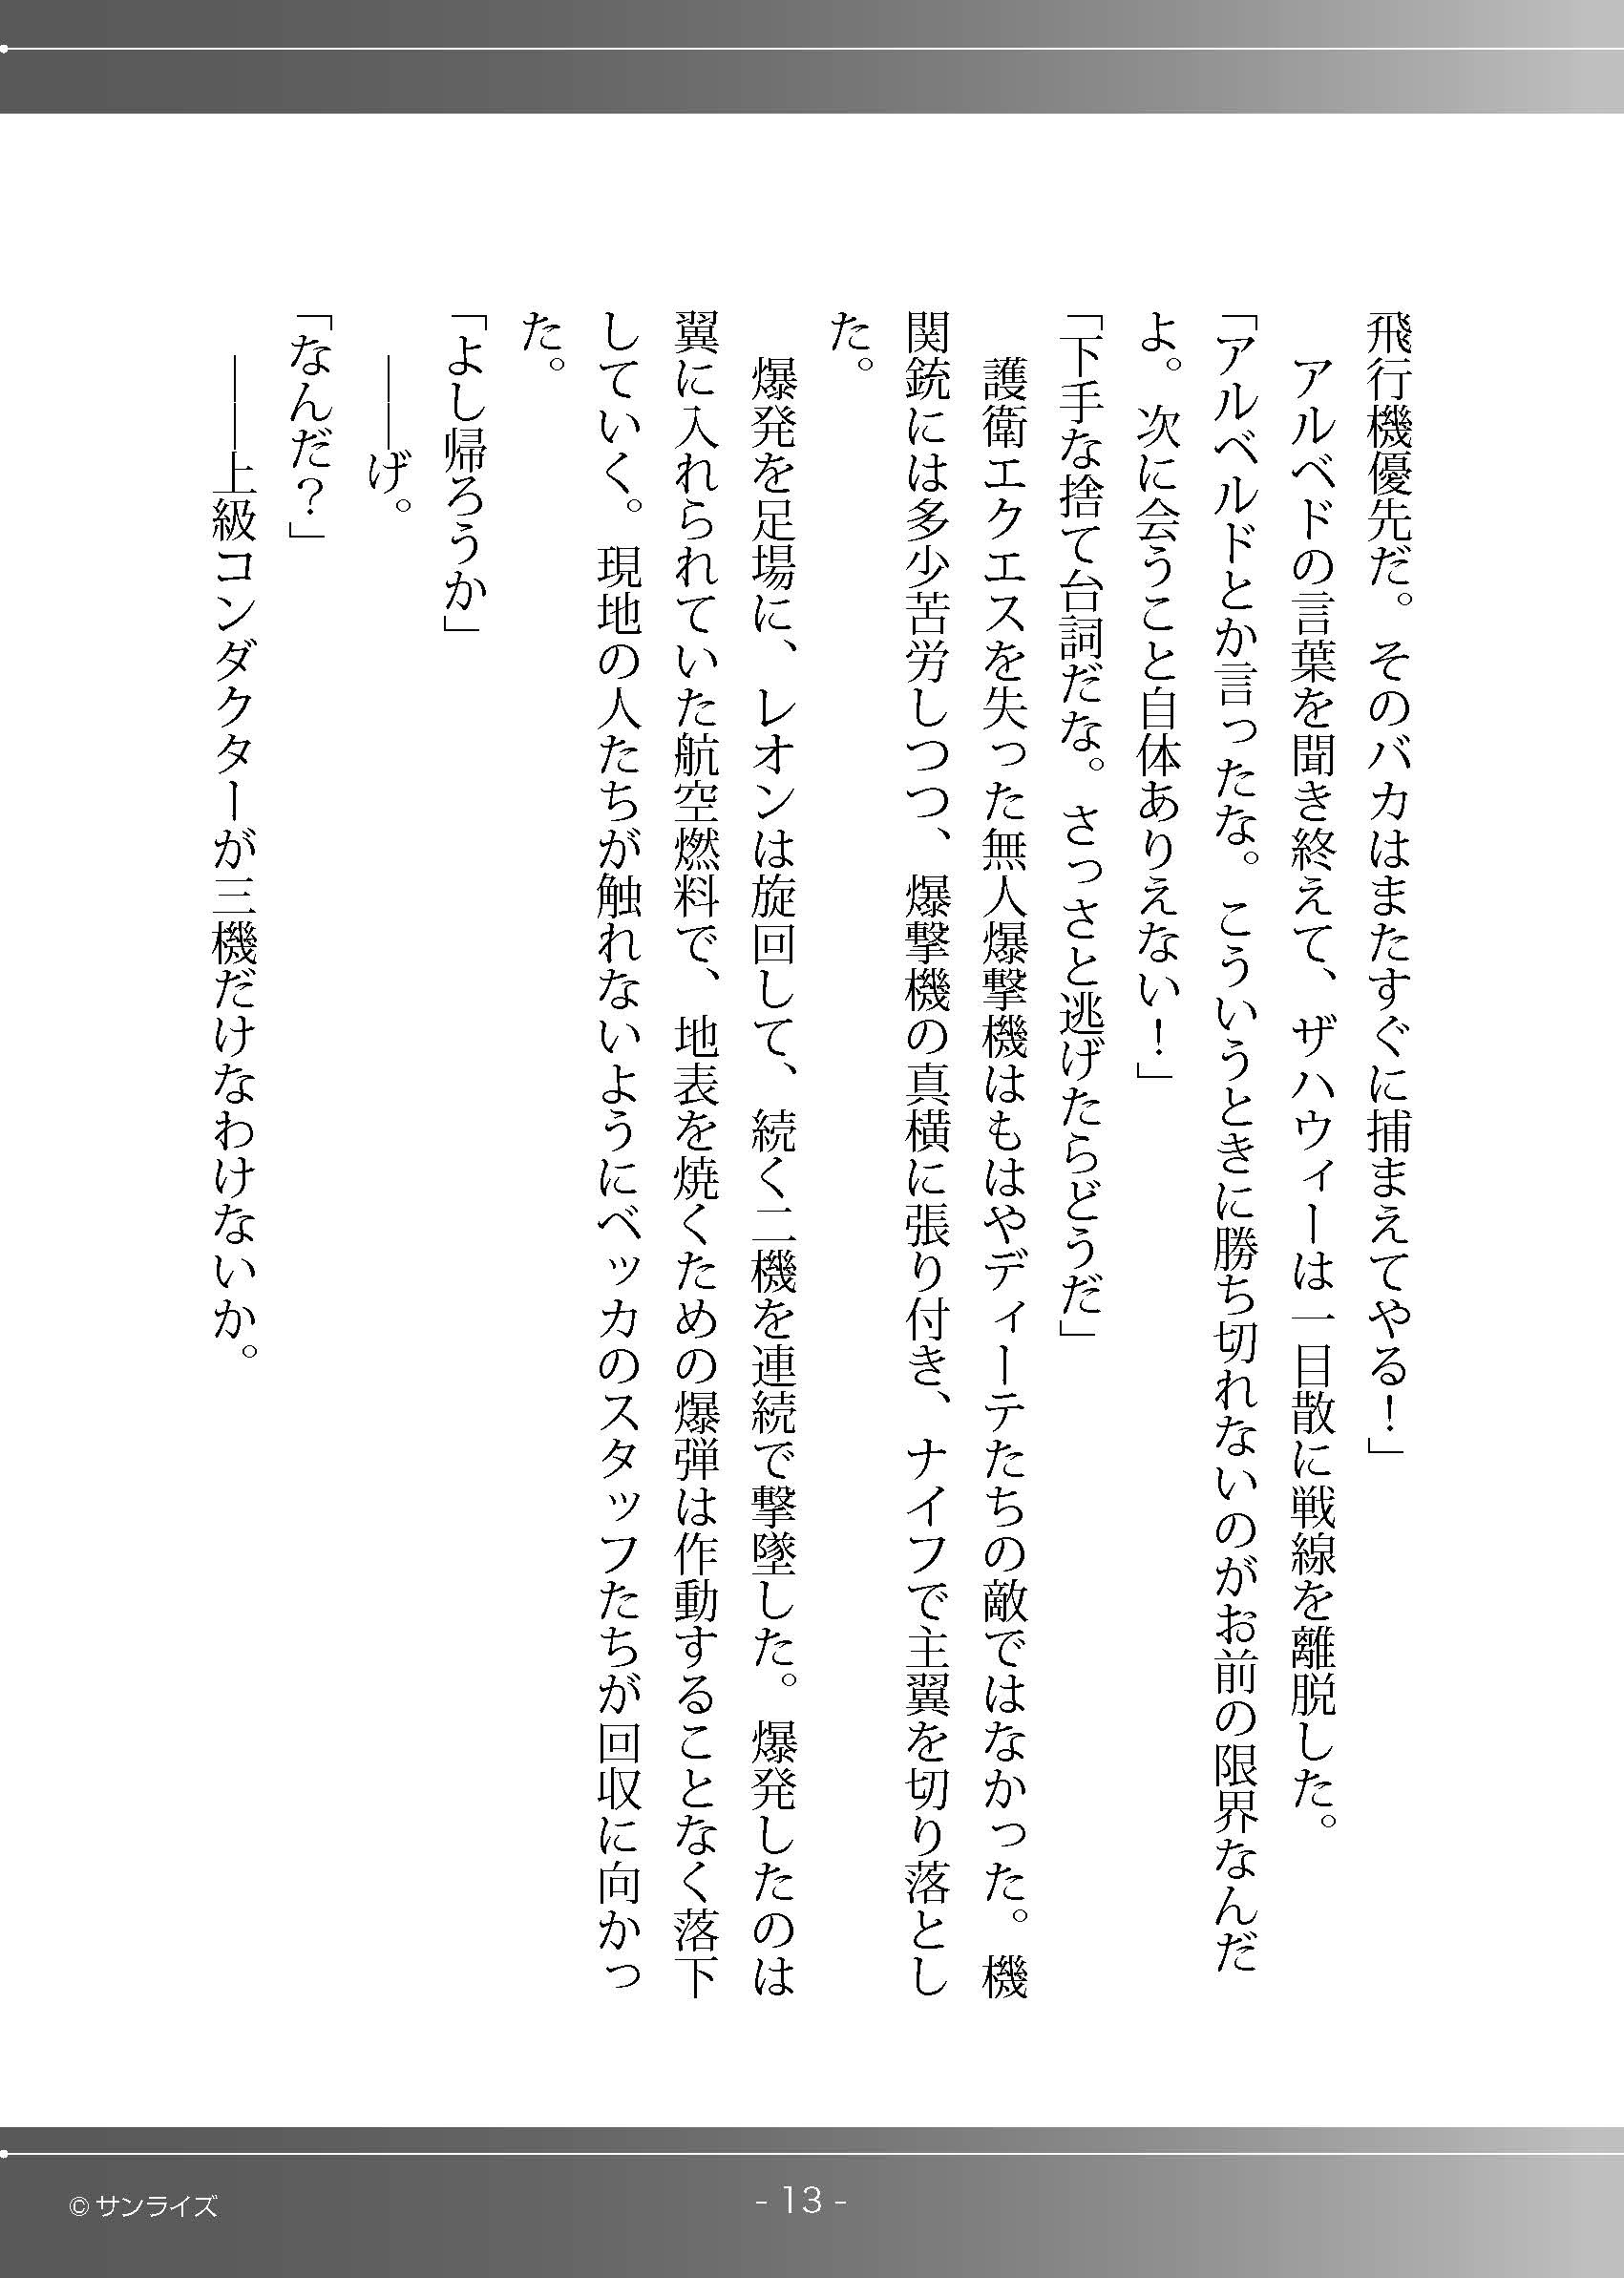 飛行機優先だ。そのバカはまたすぐに捕まえてやる！」
アルベドの言葉を聞き終えて、ザハウィーは一目散に戦線を離脱した。
「アルベルドとか言ったな。こういうときに勝ち切れないのがお前の限界なんだ
よ。次に会うこと自体ありえない！」
「下手な捨て台詞だな。さっさと逃げたらどうだ」
護衛エクエスを失った無人爆撃機はもはやディーテたちの敵ではなかった。機
関銃には多少苦労しつつ、爆撃機の真横に張り付き、ナイフで主翼を切り落とし
た。
爆発を足場に、レオンは旋回して、続く二機を連続で撃墜した。爆発したのは
翼に入れられていた航空燃料で、地表を焼くための爆弾は作動することなく落下
していく。現地の人たちが触れないようにベッカのスタッフたちが回収に向かっ
た。
「よし帰ろうか」
――げ。
「なんだ？」
――上級コンダクターが三機だけなわけないか。
© サンライズ
- 13 -